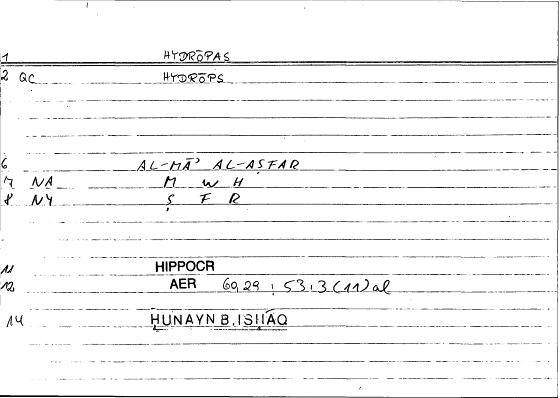 1 HYDRŌPAS
2 QC HYDRŌPS
6 AL-MĀʾ AL-AṢFAR
7 NA M W H
8 NY Ṣ F R
11 HIPPOCR
12 AER 60,29 : 53,3 (11) al
14 ḤUNAYN B. ISḤĀQ